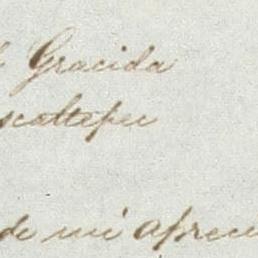 Gracida
scaltepec
de mi aprec